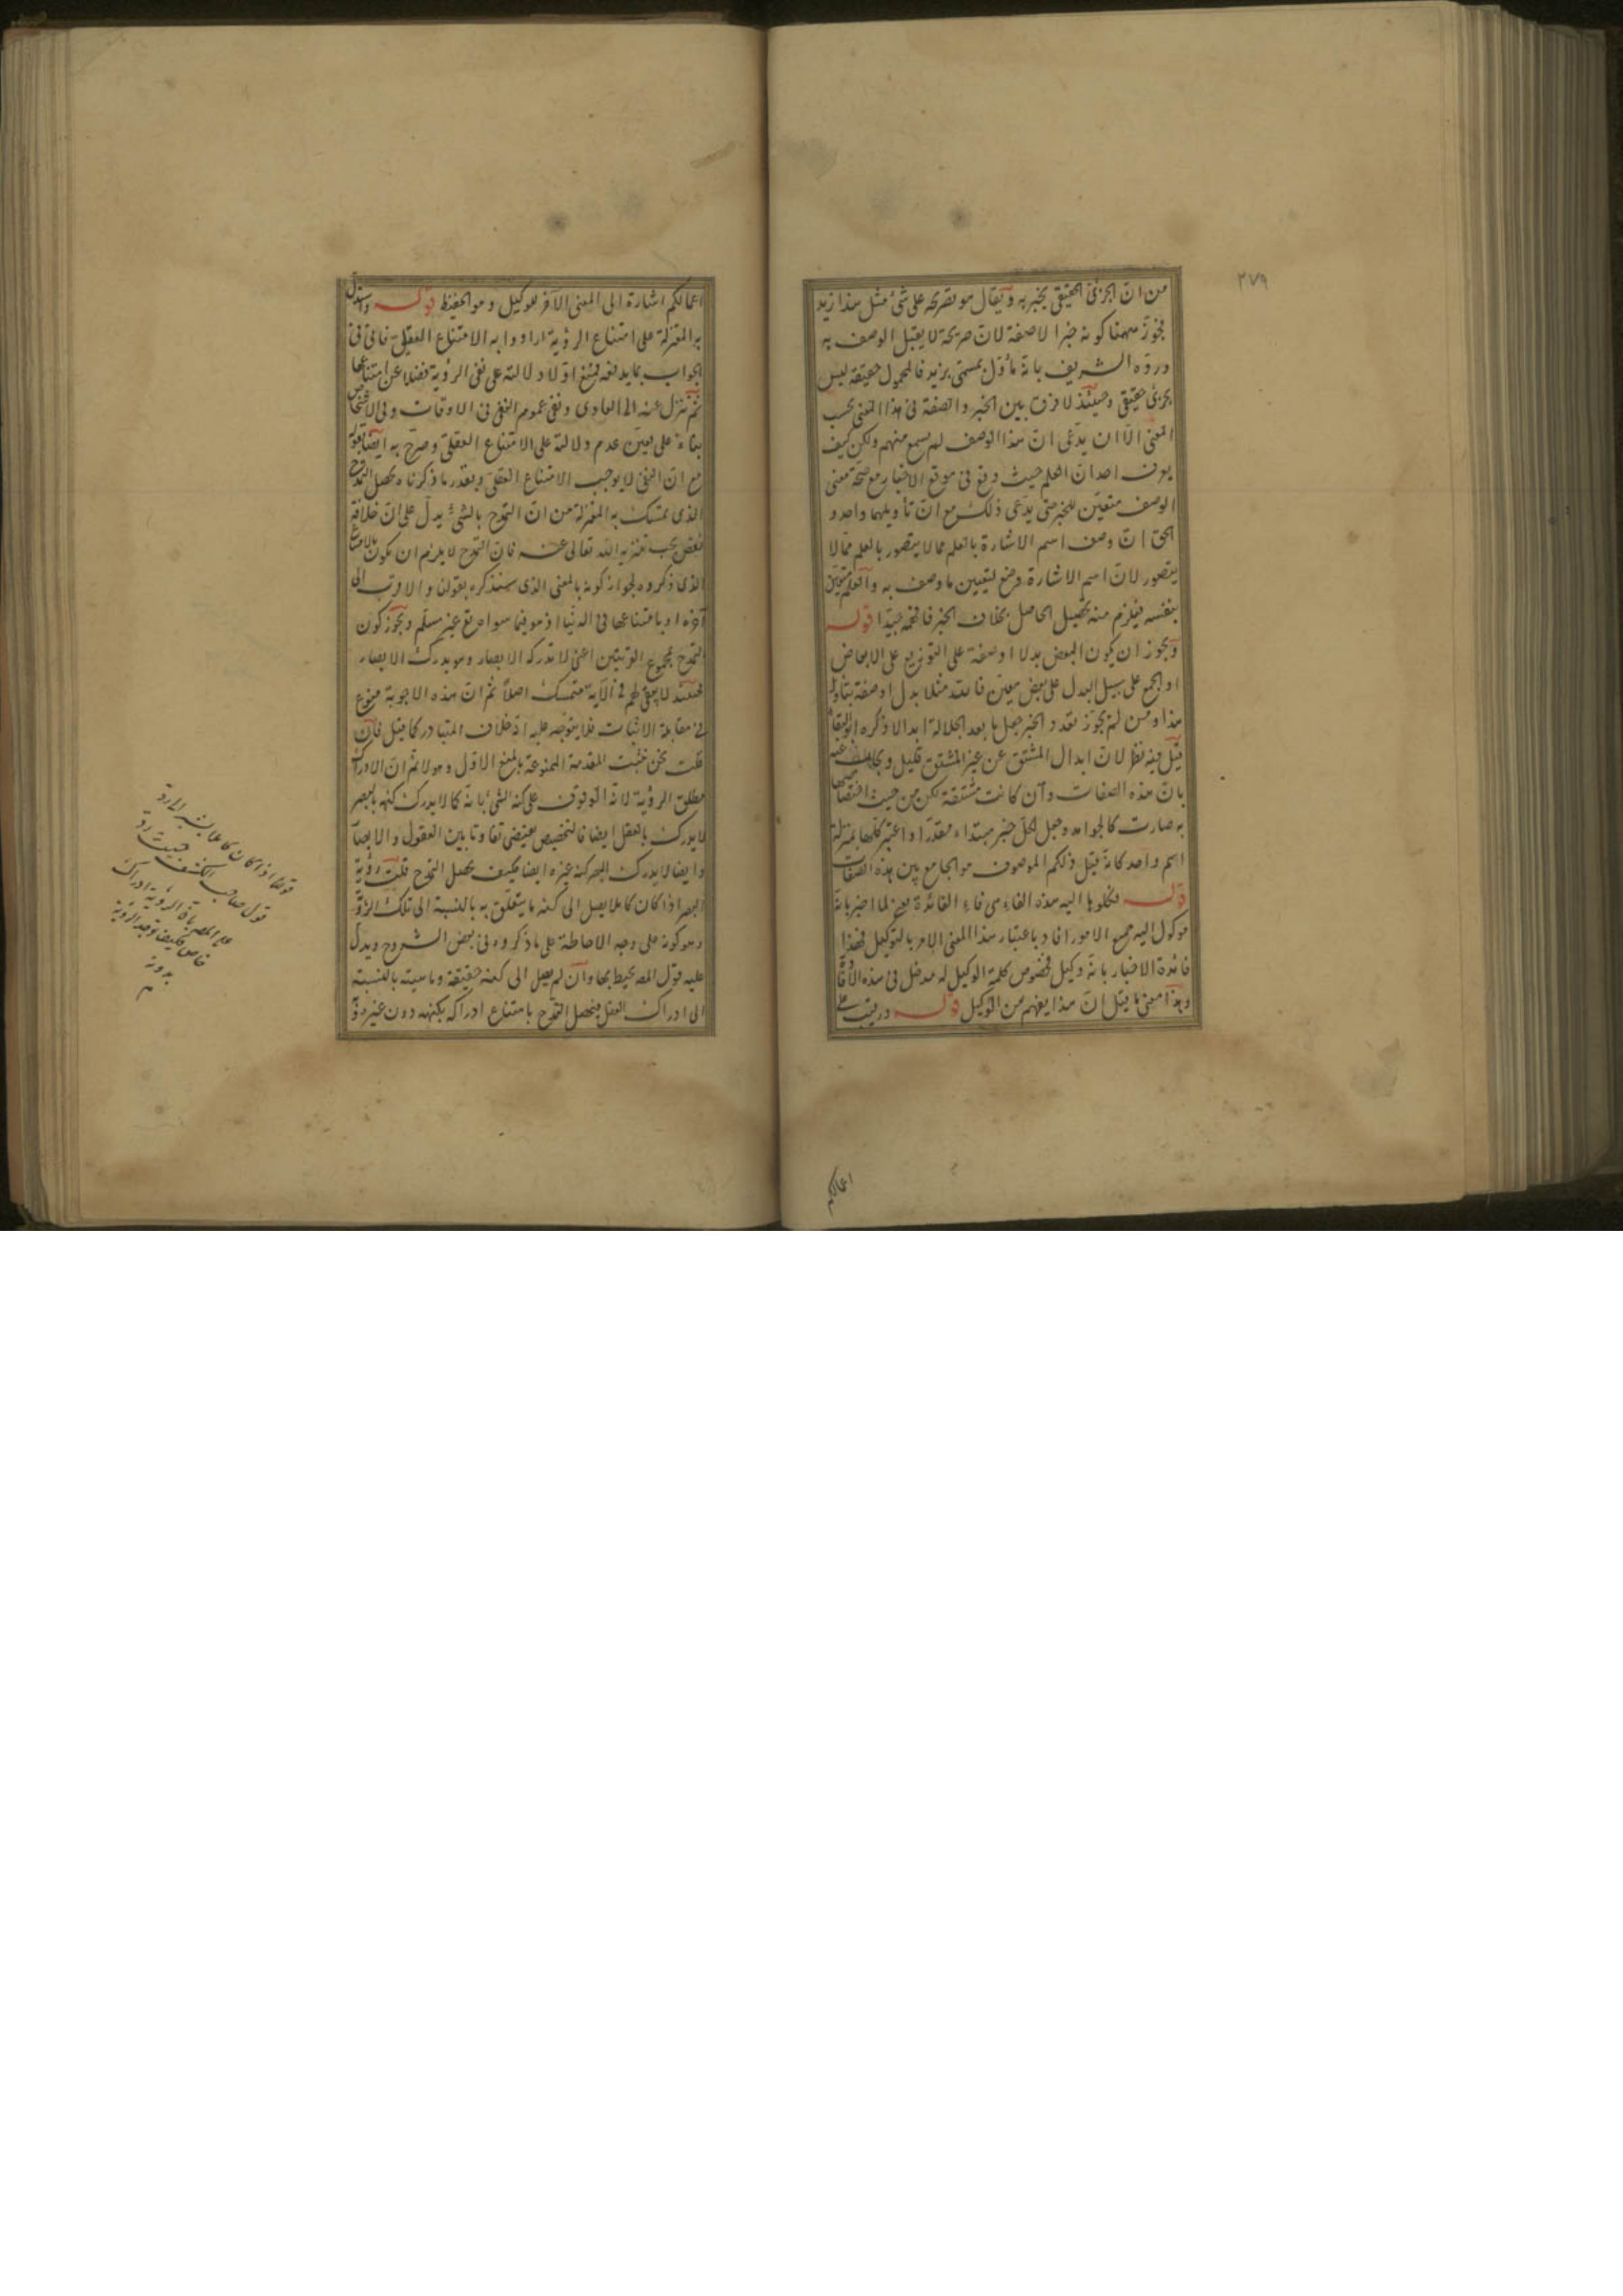 ٢٧٩
من ان الجزئى الحقيقى يخبر به ويقال هو تصريحه على شئ مثل هذا زيد
فجوز ههنا كونه خبرا لا صفة لان صريحة لا يقبل الوصف به
ورده الشريف بانه مأول بمسمى بزيد فالمحمول حقيقة ليس
بجزئى حقيقى وحينئذ لا فرق بين الخبر والصفة فى هذا المعنى بحسب
المعنى الا ان يدعى ان هذا الوصف لم يسمع منهم ولكن كيف
يعرف احد ان العلم حيث وقع فى موقع الاخبار مع صحة معنى
الوصف متعين للخبر حتى يدعى ذلك مع ان تأويلهما واحد و
الحق ان وصف اسم الاشارة بالعلم مما لا يتصور بالعلم مما لا
يتصور لان اسم الاشارة وضع ليتعين ما وصف به والعلم متعين
بنفسه فيلزم منه تحصيل الحاصل بخلاف الخبر فافهمه جيدا قوله
ويجوز ان يكون البعض بدلا او صفة على التوزيع على الابعاض
او الجمع على سبيل البدل على بعض معين فالله مثلا بدل او صفة بتأويله
هذا ومن لم يجوز تعدد الخبر جعل ما بعد الجلالة ابدالا ذكره ابو البقاء
قيل فيه نظر لان ابدال المشتق عن غير المشتق قليل ويجاب عنه
بان هذه الصفات وان كانت مشتقة لكن من حيث اختصاصها
به صارت كالجوامد وجعل لكل خبر مبتداء مقدرا واعتبر كلها بمنزلة
اسم واحد كانه قيل ذلكم الموصوف هو الجامع بين هذه الصفات
قوله فكلوها اليه هذه الفاء هى فاء الفائدة يعنى لما اخبر بانه
موكول اليه جميع الامور افاد باعتبار هذا المعنى الامر بالتوكيل فهذا
فائدة الاخبار بانه وكيل فخصوص كلمة الوكيل له مدخل فى هذه الافادة
وهذا معنى ما قيل ان هذا يفهم من الوكيل قوله ورقيب على
اعمالكم
اعمالكم اشارة الى المعنى الآخر للوكيل وهو الحفيظ قوله واستدل
به المعتزلة على امتناع الرؤية ارادوا به الامتناع العقلى فاتى فى
الجواب بما يدفعه فمنع اولا دلالته على نفى الرؤية فضلا عن امتناعها
ثم تنزل عنه الى العادى ونفى عموم النفى فى الاوقات وفى الاشخاص
بناء على تعين عدم دلالته على الامتناع العقلى وصرح به ايضا بقوله
مع ان النفى لا يوجب الامتناع العقلى وبقدر ما ذكرناه يحصل التمدح
الذى تمسك به المعتزلة من ان التمدح بالشئ يدل على ان خلافه
نقص يجب تنزيه الله تعالى عنه فان التمدح لا يلزم ان يكون بالامتناع
الذى ذكروه لجواز كونه بالمعنى الذى سنذكره بقولنا والاقرب الى
آخره او بامتناعها فى الدنيا اذ هو فيما سوا مرتع غير مسلم ويجوز كون
التمدح بمجموع القرينتين اعنى لا تدركه الابصار وهو يدرك الابصار
فحينئذ لا يبقى لهم فى الآية متمسك اصلا ثم ان هذه الاجوبة منوع
فى مقابلة الاثبات فلا يتوجه عليه انه خلاف المتبادر كما قيل فان
قلت نحن نثبت المقدمة الممنوعة بالمنع الاول وهو لا نم ان الادراك
مطلق الرؤية لانه الوقوف على كنه الشئ بانه كما لا يدرك كنهه بالبصر
لا يدرك بالعقل ايضا فالتخصيص يقتضى تفاوتا بين العقول والابصار
وايضا لا يدرك البصر كنه غيره ايضا فكيف يحصل التمدح قلت رؤية
البصر اذا كان كاملا يصل الى كنه ما يتعلق به بالنسبة الى تلك الرؤية
وهو كونه على وجه الاحاطة على ما ذكروه فى بعض الشروح ويدل
عليه قول المص محيط بها وان لم يصل الى كنه حقيقة وماهيته بالنسبة
الى ادراك العقل فيحصل التمدح بامتناع ادراكه بكنهه دون غيره
قوله اذا كان كاملا
قول صاحب الكشف حيث رد
على المص بان الرؤية ادراك
خاص فكيف توجد الرؤية
بدونه